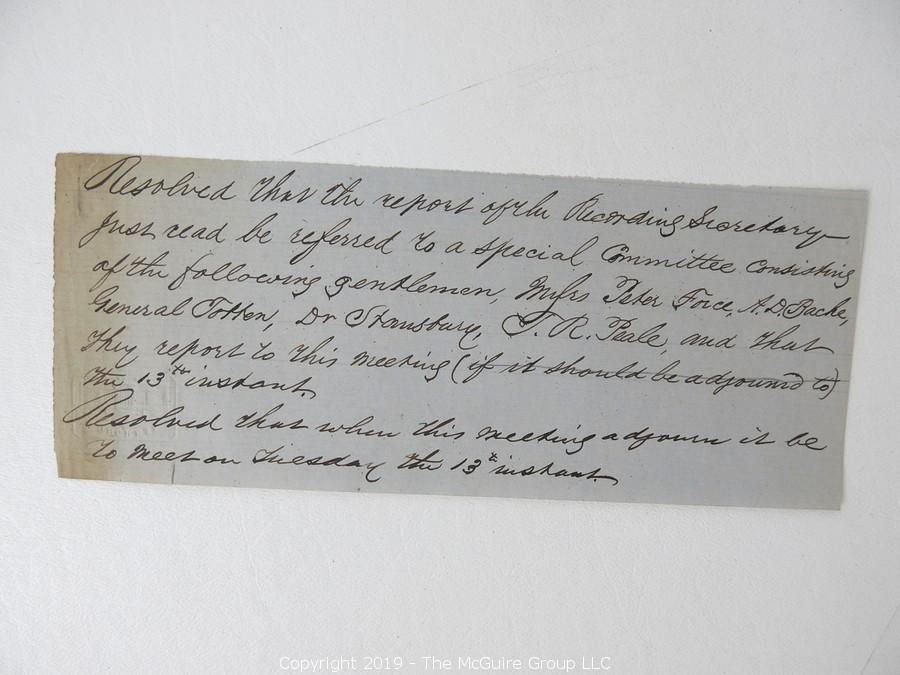 Resolved that the report of the Recording Secretary
just read be referred to a special Committee consisting
of the following gentlemen, Messrs Peter Force, A. D. Bache,
General Totten, Dr Stansbury, T. R. Peale, and that
they report to this meeting (if it should be adjourned to)
the 13th instant.
Resolved that when this meeting adjourn it be
to meet on Tuesday the 13th instant.
Copyright 2019 - The McGuire Group LLC